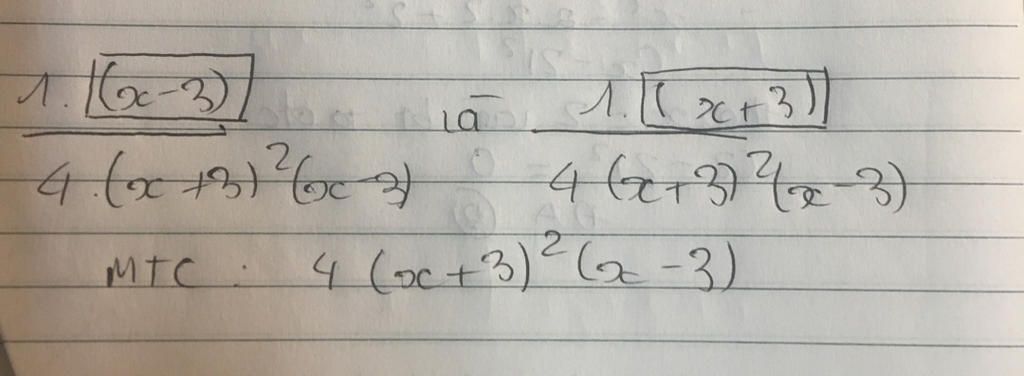 1. (x-3) / 4.(x+3)²(x-3) và 1.(x+3) / 4(x+3)²(x-3)
MTC : 4(x+3)²(x-3)